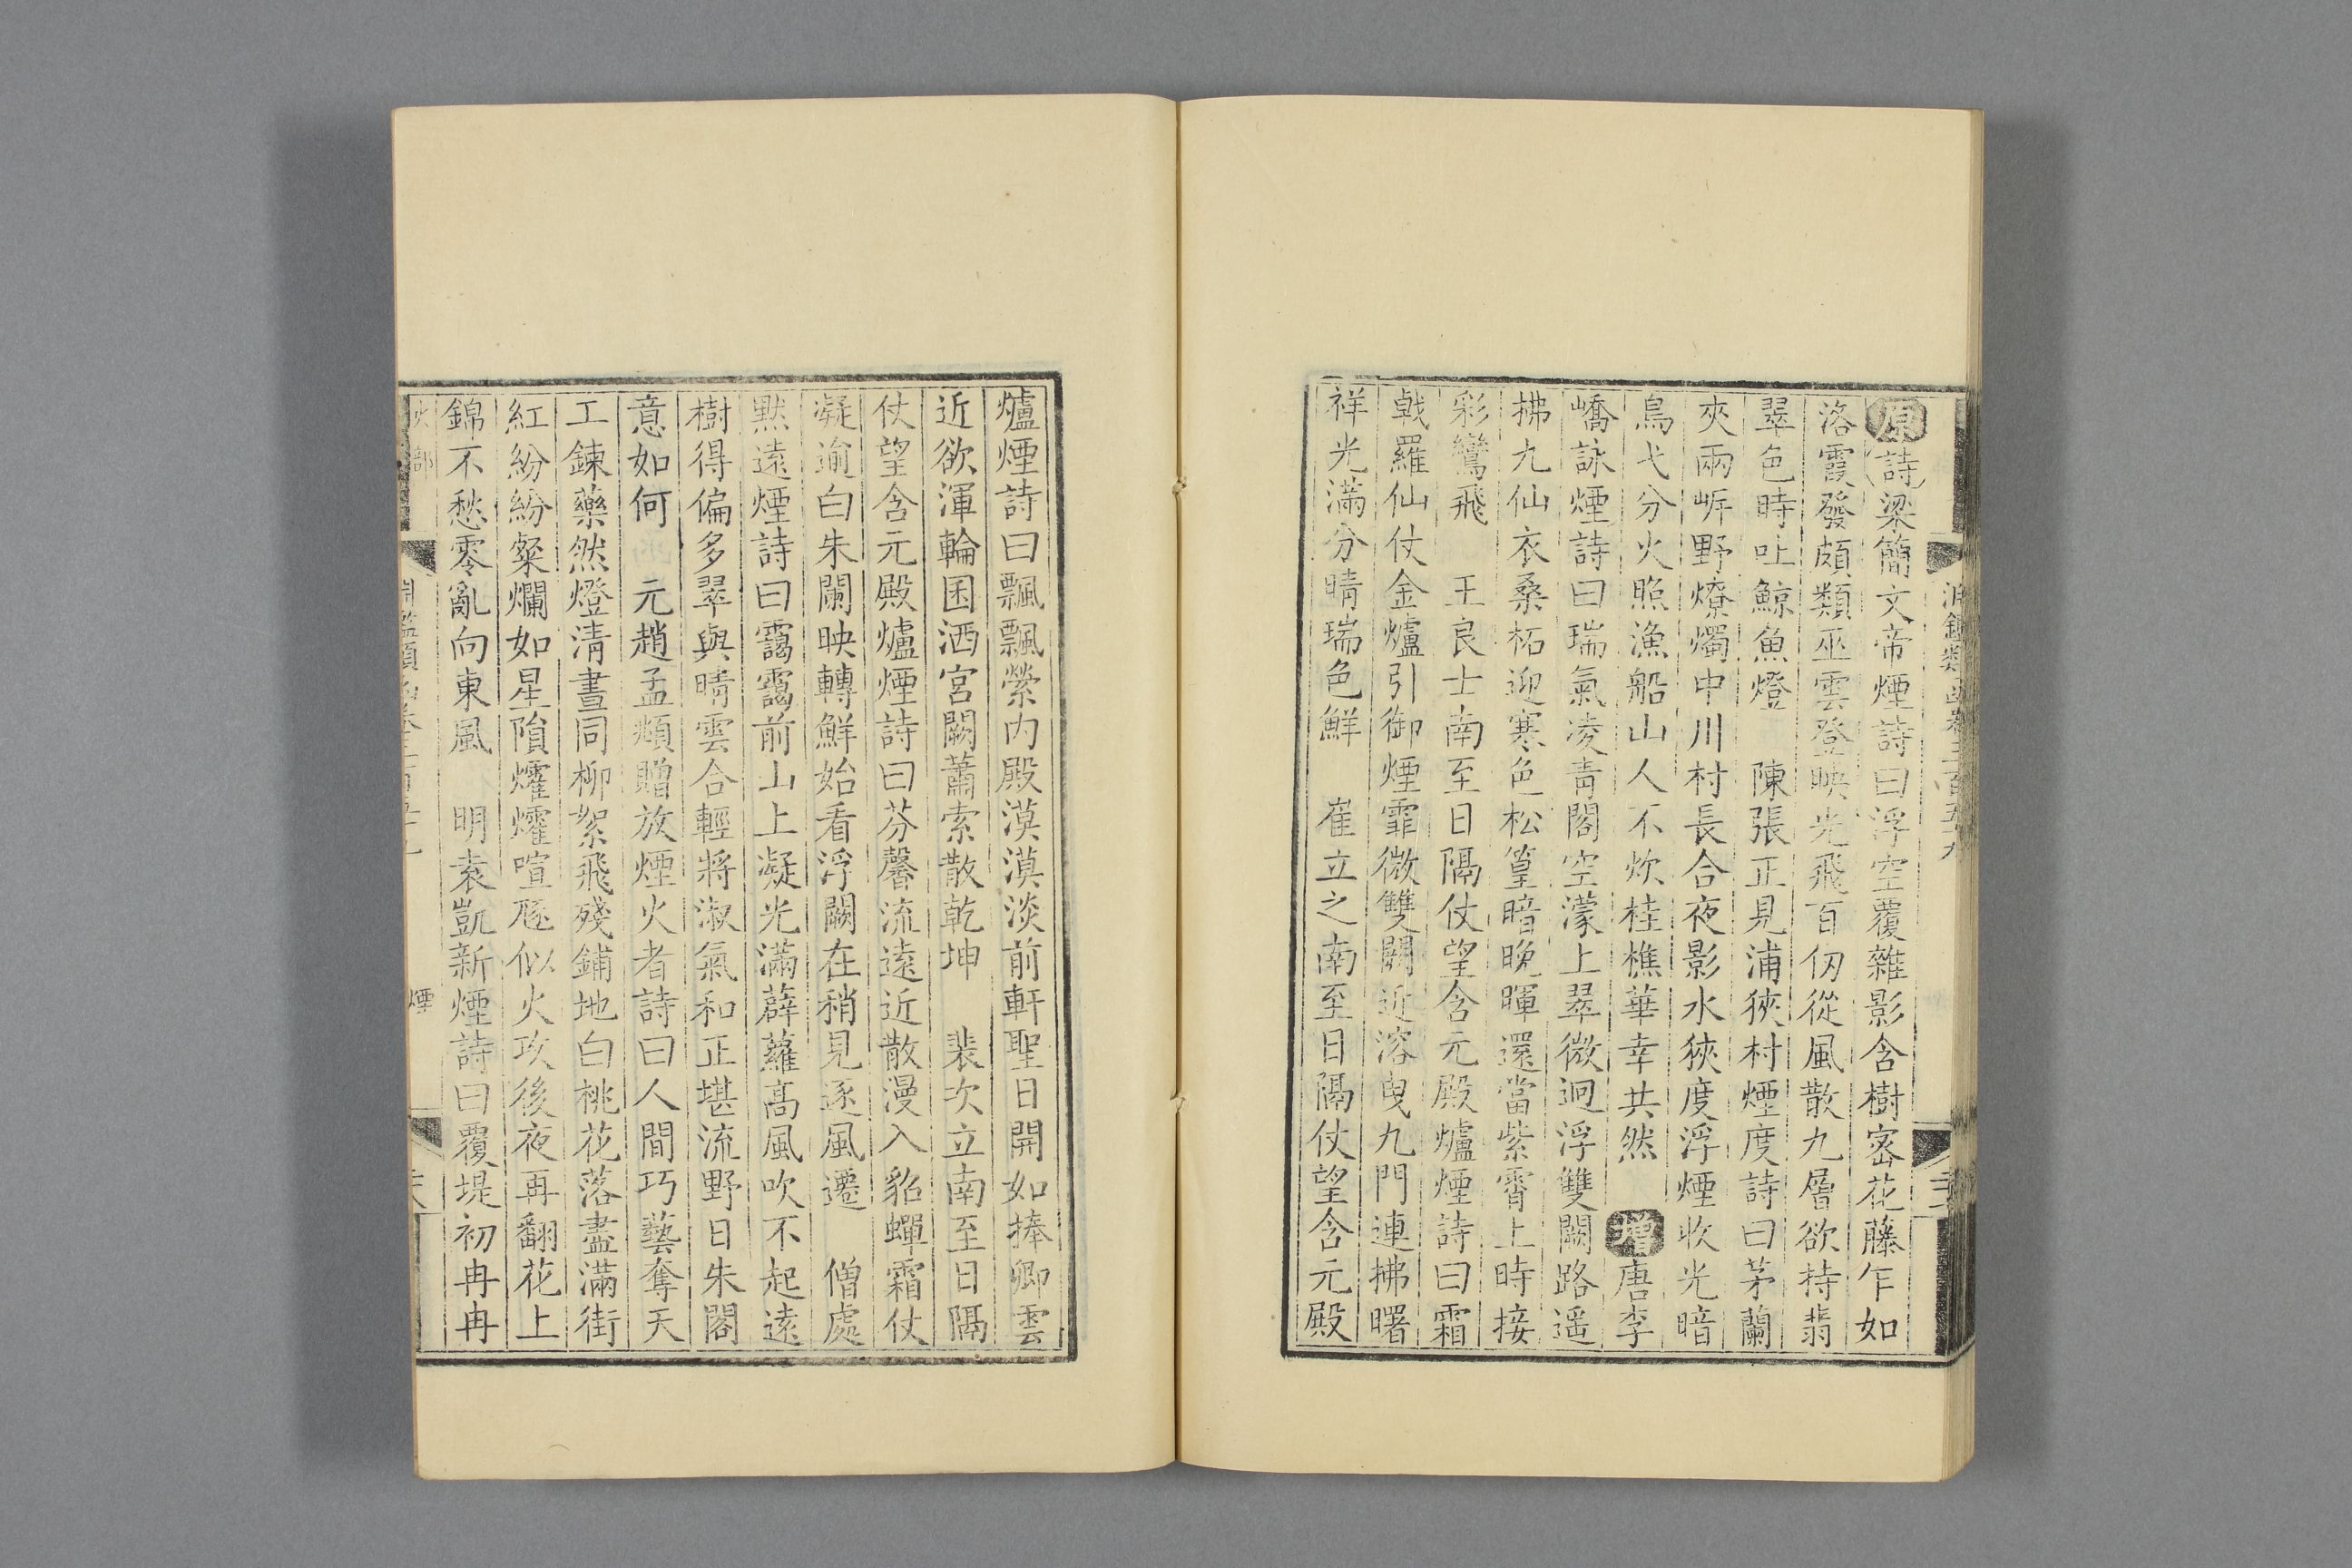 原詩梁簡文帝煙詩曰浮空覆雜影含樹密花藤乍如
洛霞發頗類巫雲登映光飛百仞從風散九層欲持翡
翠色時吐鯨魚燈　陳張正見浦狹村煙度詩曰茅蘭
夾兩㟁野燎燭中川村長合夜影水狹度浮煙收光暗
鳥弋分火照漁船山人不炊桂樵華幸共然　增唐李
嶠詠煙詩曰瑞氣凌青閣空濛上翠微迥浮雙闕路遥
拂九仙衣桑柘迎寒色松篁暗晚暉還當紫霄上時接
彩鸞飛　王良士南至日隔仗望含元殿爐煙詩曰霜
戟羅仙仗金爐引御煙霏微雙闕近溶曳九門連拂曙
祥光滿分晴瑞色鮮　崔立之南至日隔仗望含元殿
爐煙詩曰飄飄縈内殿漠漠淡前軒聖日開如捧卿雲
近欲渾輪囷洒宮闕蕭索散乾坤　裴次立南至日隔
仗望含元殿爐煙詩曰芬馨流遠近散漫入貂蟬霜仗
凝逾白朱闌映轉鮮始看浮闕在稍見逐風遷　僧處
黙遠煙詩曰靄靄前山上凝光滿薜蘿髙風吹不起遠
樹得偏多翠與晴雲合輕將淑氣和正堪流野日朱閣
意如何　元趙孟頫贈放煙火者詩曰人間巧藝奪天
工鍊藥然燈清晝同柳絮飛殘鋪地白桃花落盡滿街
紅紛紛粲爛如星隕爠爠喧豗似火攻後夜再翻花上
錦不愁零亂向東風　明袁凱新煙詩曰覆堤初冉冉
火部
煙